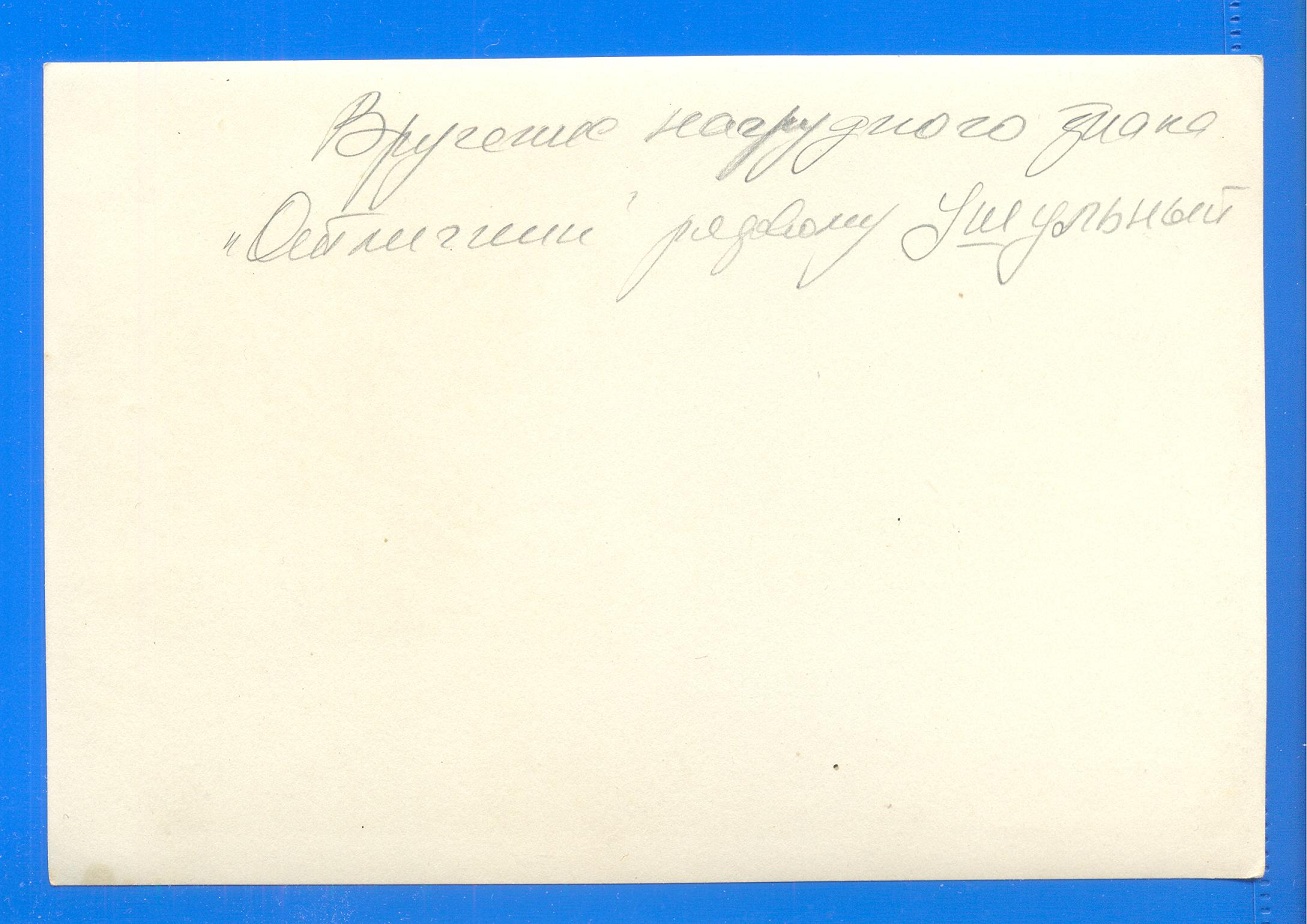 Вручение нагрудного знака
"Отличник" рядовому Ушульный